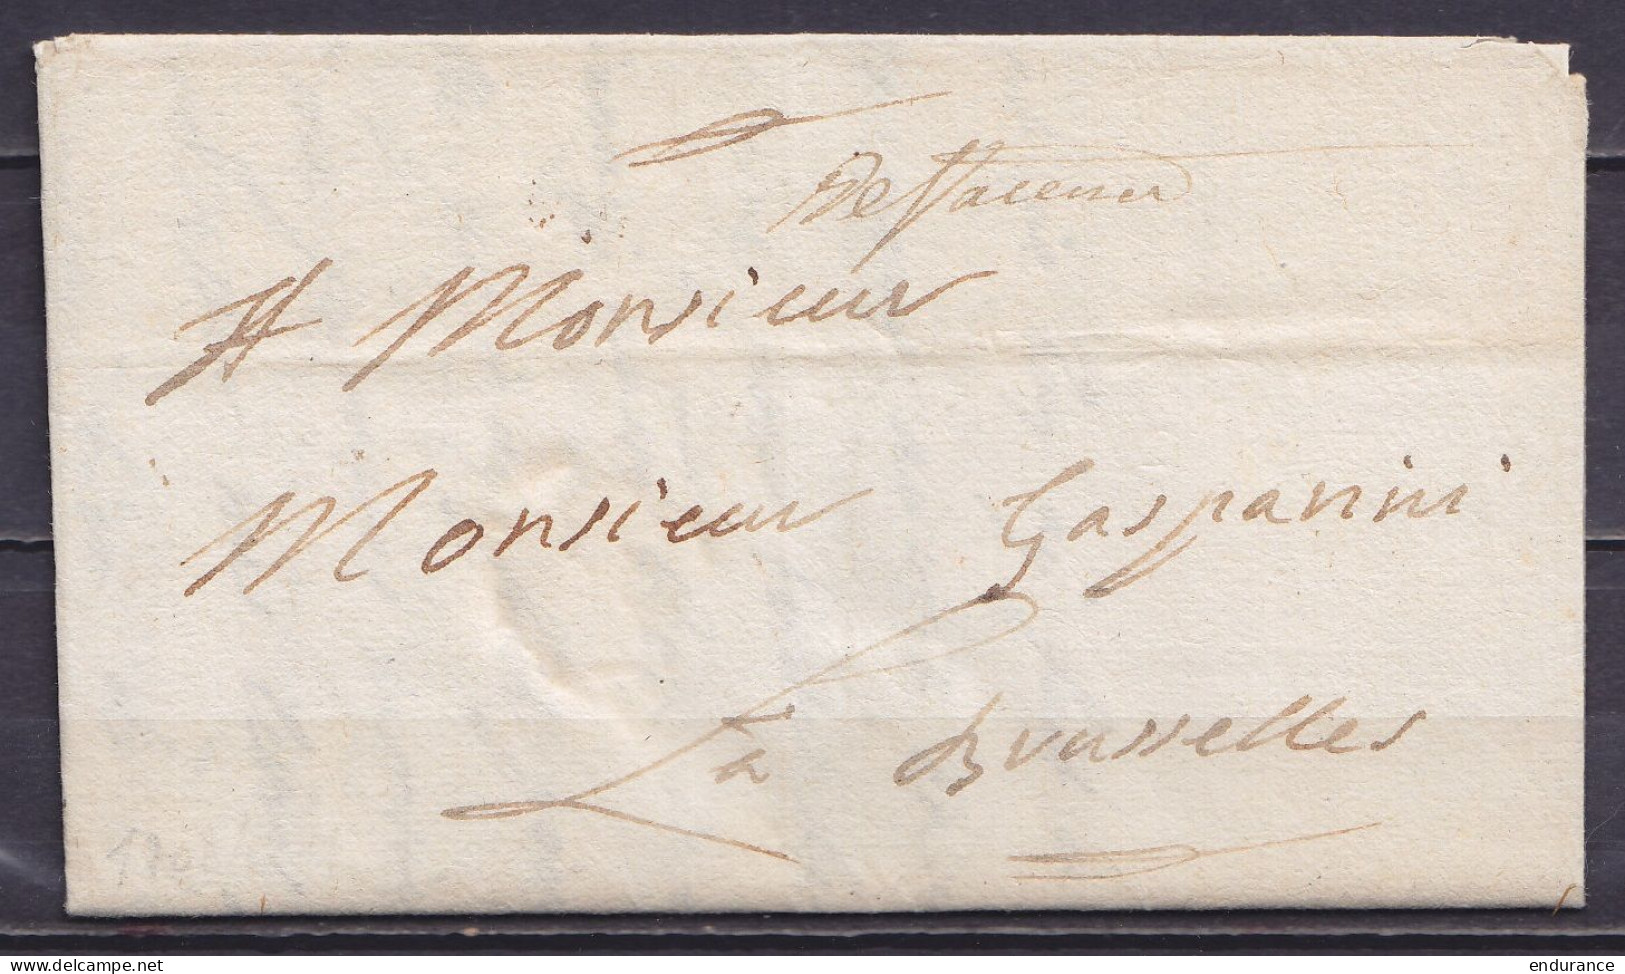 De Macenier
A Monsieur
Monsieur Gasparini
a Brusselles
1702
delcampe.net
endurance